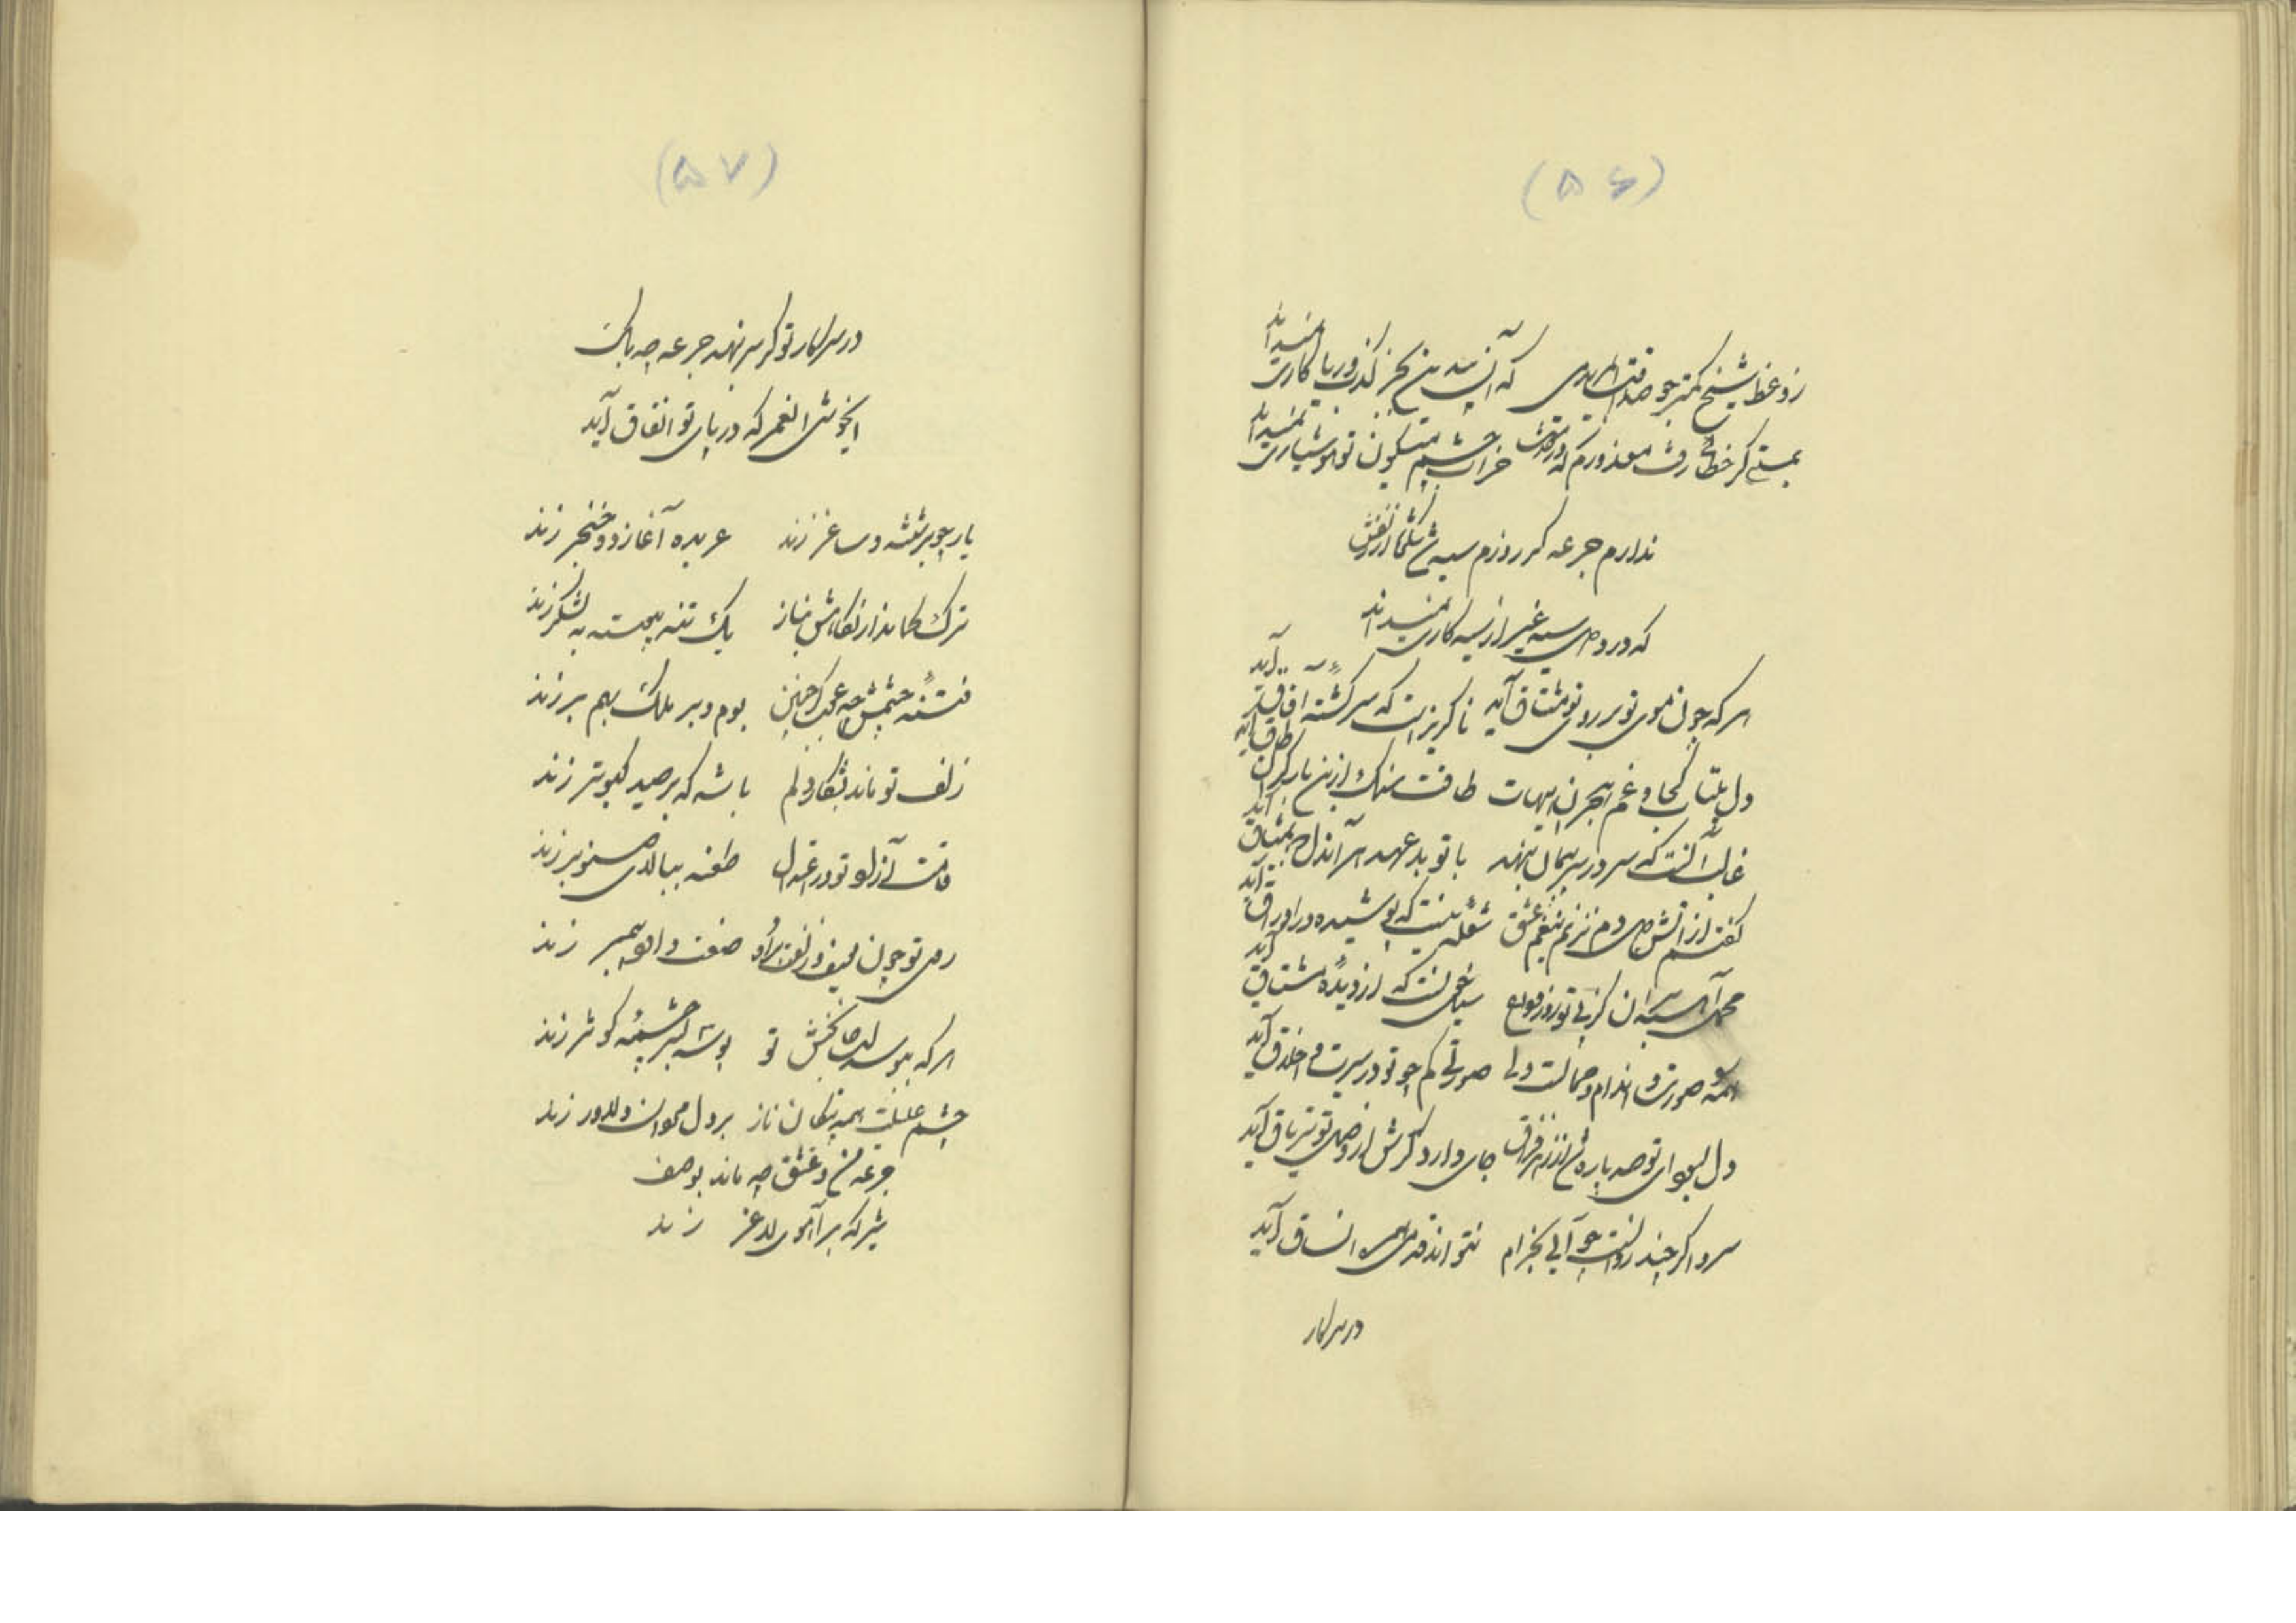 (۵۶)
ز وعظ شیخ کمتر جو صداقت که آن بیدین بجز کذب و ریاکاری نمیداند
بمستی گر خطائی رفت معذورم که در خراب چشم میگون تو هوشیاری نمیداند
ندارم جرعه گر روزم سیه شد شکوه از زلفش
که در دهای سیه غیر از سیه کاری نمیداند
هر که چون موی تو بر روی تو مشتاق آید ناگریز است که سرگشته آفاق آید
دل بیتاب کجا و غم هجران هیهات طاقت سنگ ازین بار گران طاق آید
غالب آنست که سر در سر پیمان بنهد با تو بدعهد هر آندل که بمیثاق آید
گفتم از آتش دل دم نزنم عشق شعله نیست که پوشیده در اوراق آید
محمل آهسته بران کز پی تو روز وداع سیل اشکی است که از دیده مشتاق آید
همه صورت و اندام و جمالت ولی صورتی کم چو تو در سیرت و اخلاق آید
دل بسودای تو صد پاره شد از زهر فراق جای دارد گرش از وصل تو تریاق آید
سرو اگر چند روانست چو آئی بخرام نتواند قدمی همره آنساق آید
در سر کار
(۵۷)
در سر کار تو گر سر بنهد جرعه چه باک
ایخوش العمر که در پای تو انفاق آید
یار چو بر شیشه و ساغر زند عربده آغازد و خنجر زند
ترک کماندار نگاهش بناز یک تنه پیوسته به لشکر زند
فتنه چشمش چه عجب گر چنین بوم و بر ملک بهم بر زند
زلف تو ماند بشکار دلم باشه که بر صید کبوتر زند
قامت آزاد تو در اعتدال طعنه ببالای صنوبر زند
روی تو چون یوسف و زلفت براو صفت داود پیمبر زند
هر که ببوسد لب جان بخش تو بوسه بسر چشمه کوثر زند
چشم علیلت همه پیکان ناز بر دل دلاور زند
جرعه من و عشق چه ماند بوصف
شیر که بر آهوی لاغر زند